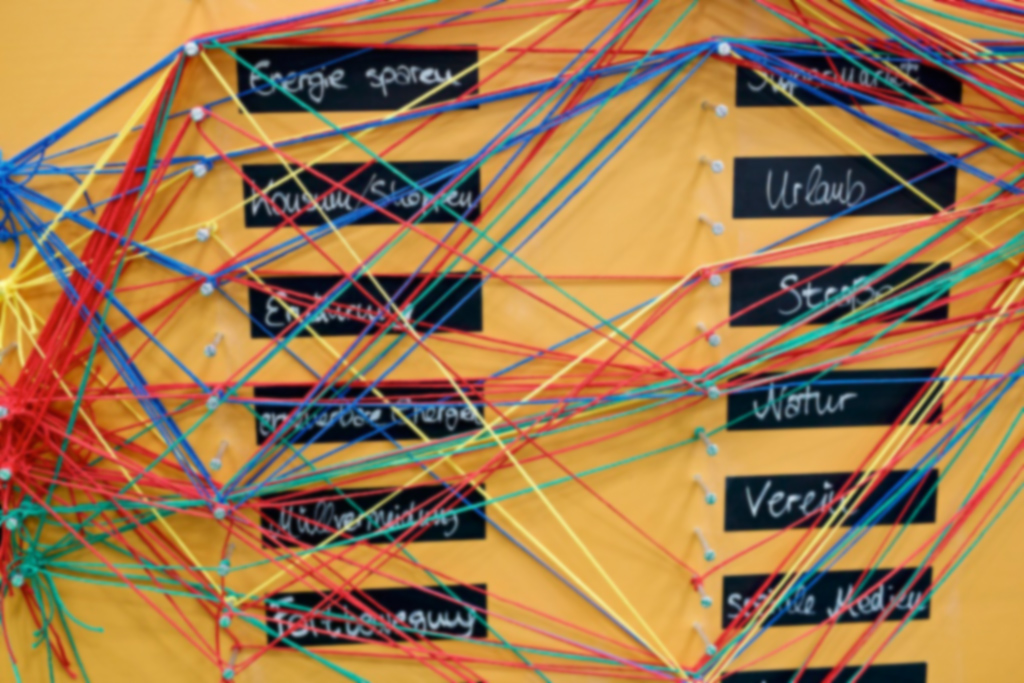 Energie sparen
Konsum/Shoppen
Ernährung
erneuerbare Energien
Müllvermeidung
Fortbewegung
Supermarkt
Urlaub
Straße
Natur
Verein
soziale Medien